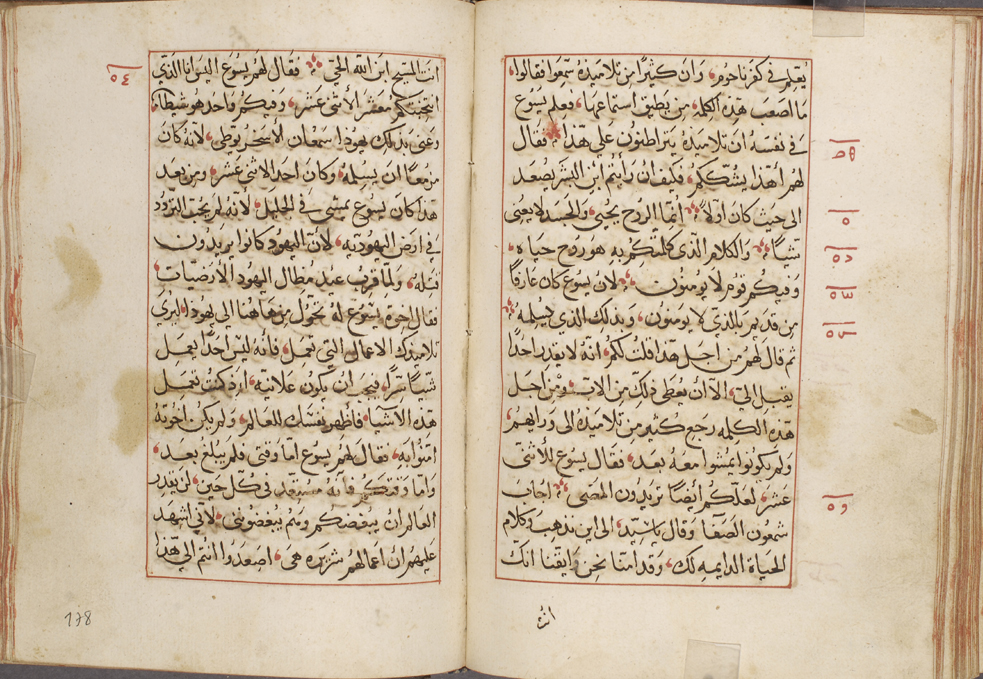 يعلم في كفرناحوم، وان كثيرًا من تلاميذه سمعوا فقالوا،
ما اصعب هذه الكلمه من يطيق استماعها، فعلم يسوع
في نفسه ان تلاميذه يتراطنون على هذا فقال
لهم أهذا يشككم، فكيف ان رأيتم ابن البشر يصعد
الى حيث كان اولاً، انما الروح يحيي، والجسد لا يغني
شيأً، والكلام الذي كلمتكم به هو روح حياه،
وفيكم قوم لا يومنون، لان يسوع كان عارفًا
من قديم بالذي لا يومنون، وبذلك الذي يسلمه
ثم قال لهم من اجل هذا قلت لكم، انه لا يقدر احدًا
يقبل اليّ، الا أن يعطى ذلك من الاب، ومن اجل
هذه الكلمه رجع كثير من تلاميذه الى ورائهم،
ولم يكونوا يمشوا معه بعد، فقال يسوع للأثنى
عشر، لعلكم ايضًا تريدون المضي، اجاب
شمعون الصفا وقال ياسيد، الى اين نذهب وكلام
الحياة الدايمه لك، وقد أمنا نحن وايقنا انك
انت
انت المسيح ابن الله الحيّ، فقال لهم يسوع اليس انا الذي
انتخبتكم معشر الأثنى عشر، وفيكم واحد هو شيطان،
وعنى بذلك يهوذا سمعان الأسخريوطي، لأنه كان
مزمعًا ان يسلمه، وكان احد الاثنى عشر، ومن بعد
هذا كان يسوع يمشي في الجليل، لأنه لم يحب التردد
في ارض اليهوديه، لأن اليهود كانوا يريدون
قتله، ولما قرب عيد مطال اليهود
فقال اخوة يسوع له تحول من هاهنا الى يهوذا، ليري
تلاميذك الاعمال التي تعمل، فأنه ليس احدًا يعمل
شيأً سرًا، فيحب ان يكون علانيه، اذ كنت تعمل
هذه الاشيا، فاظهر نفسك للعالم، ولم يكن اخوته
امنوا به، فقال لهم يسوع اما وقتي فلم يبلغ بعد،
واما وقتكم فانه مستعد في كل حين، لن يقدر
العالم ان يبغضكم وهم يبغضوني، لأني اشهد
عليهم ان اعمالهم شريره هي، اصعدوا انتم الى هذا
178